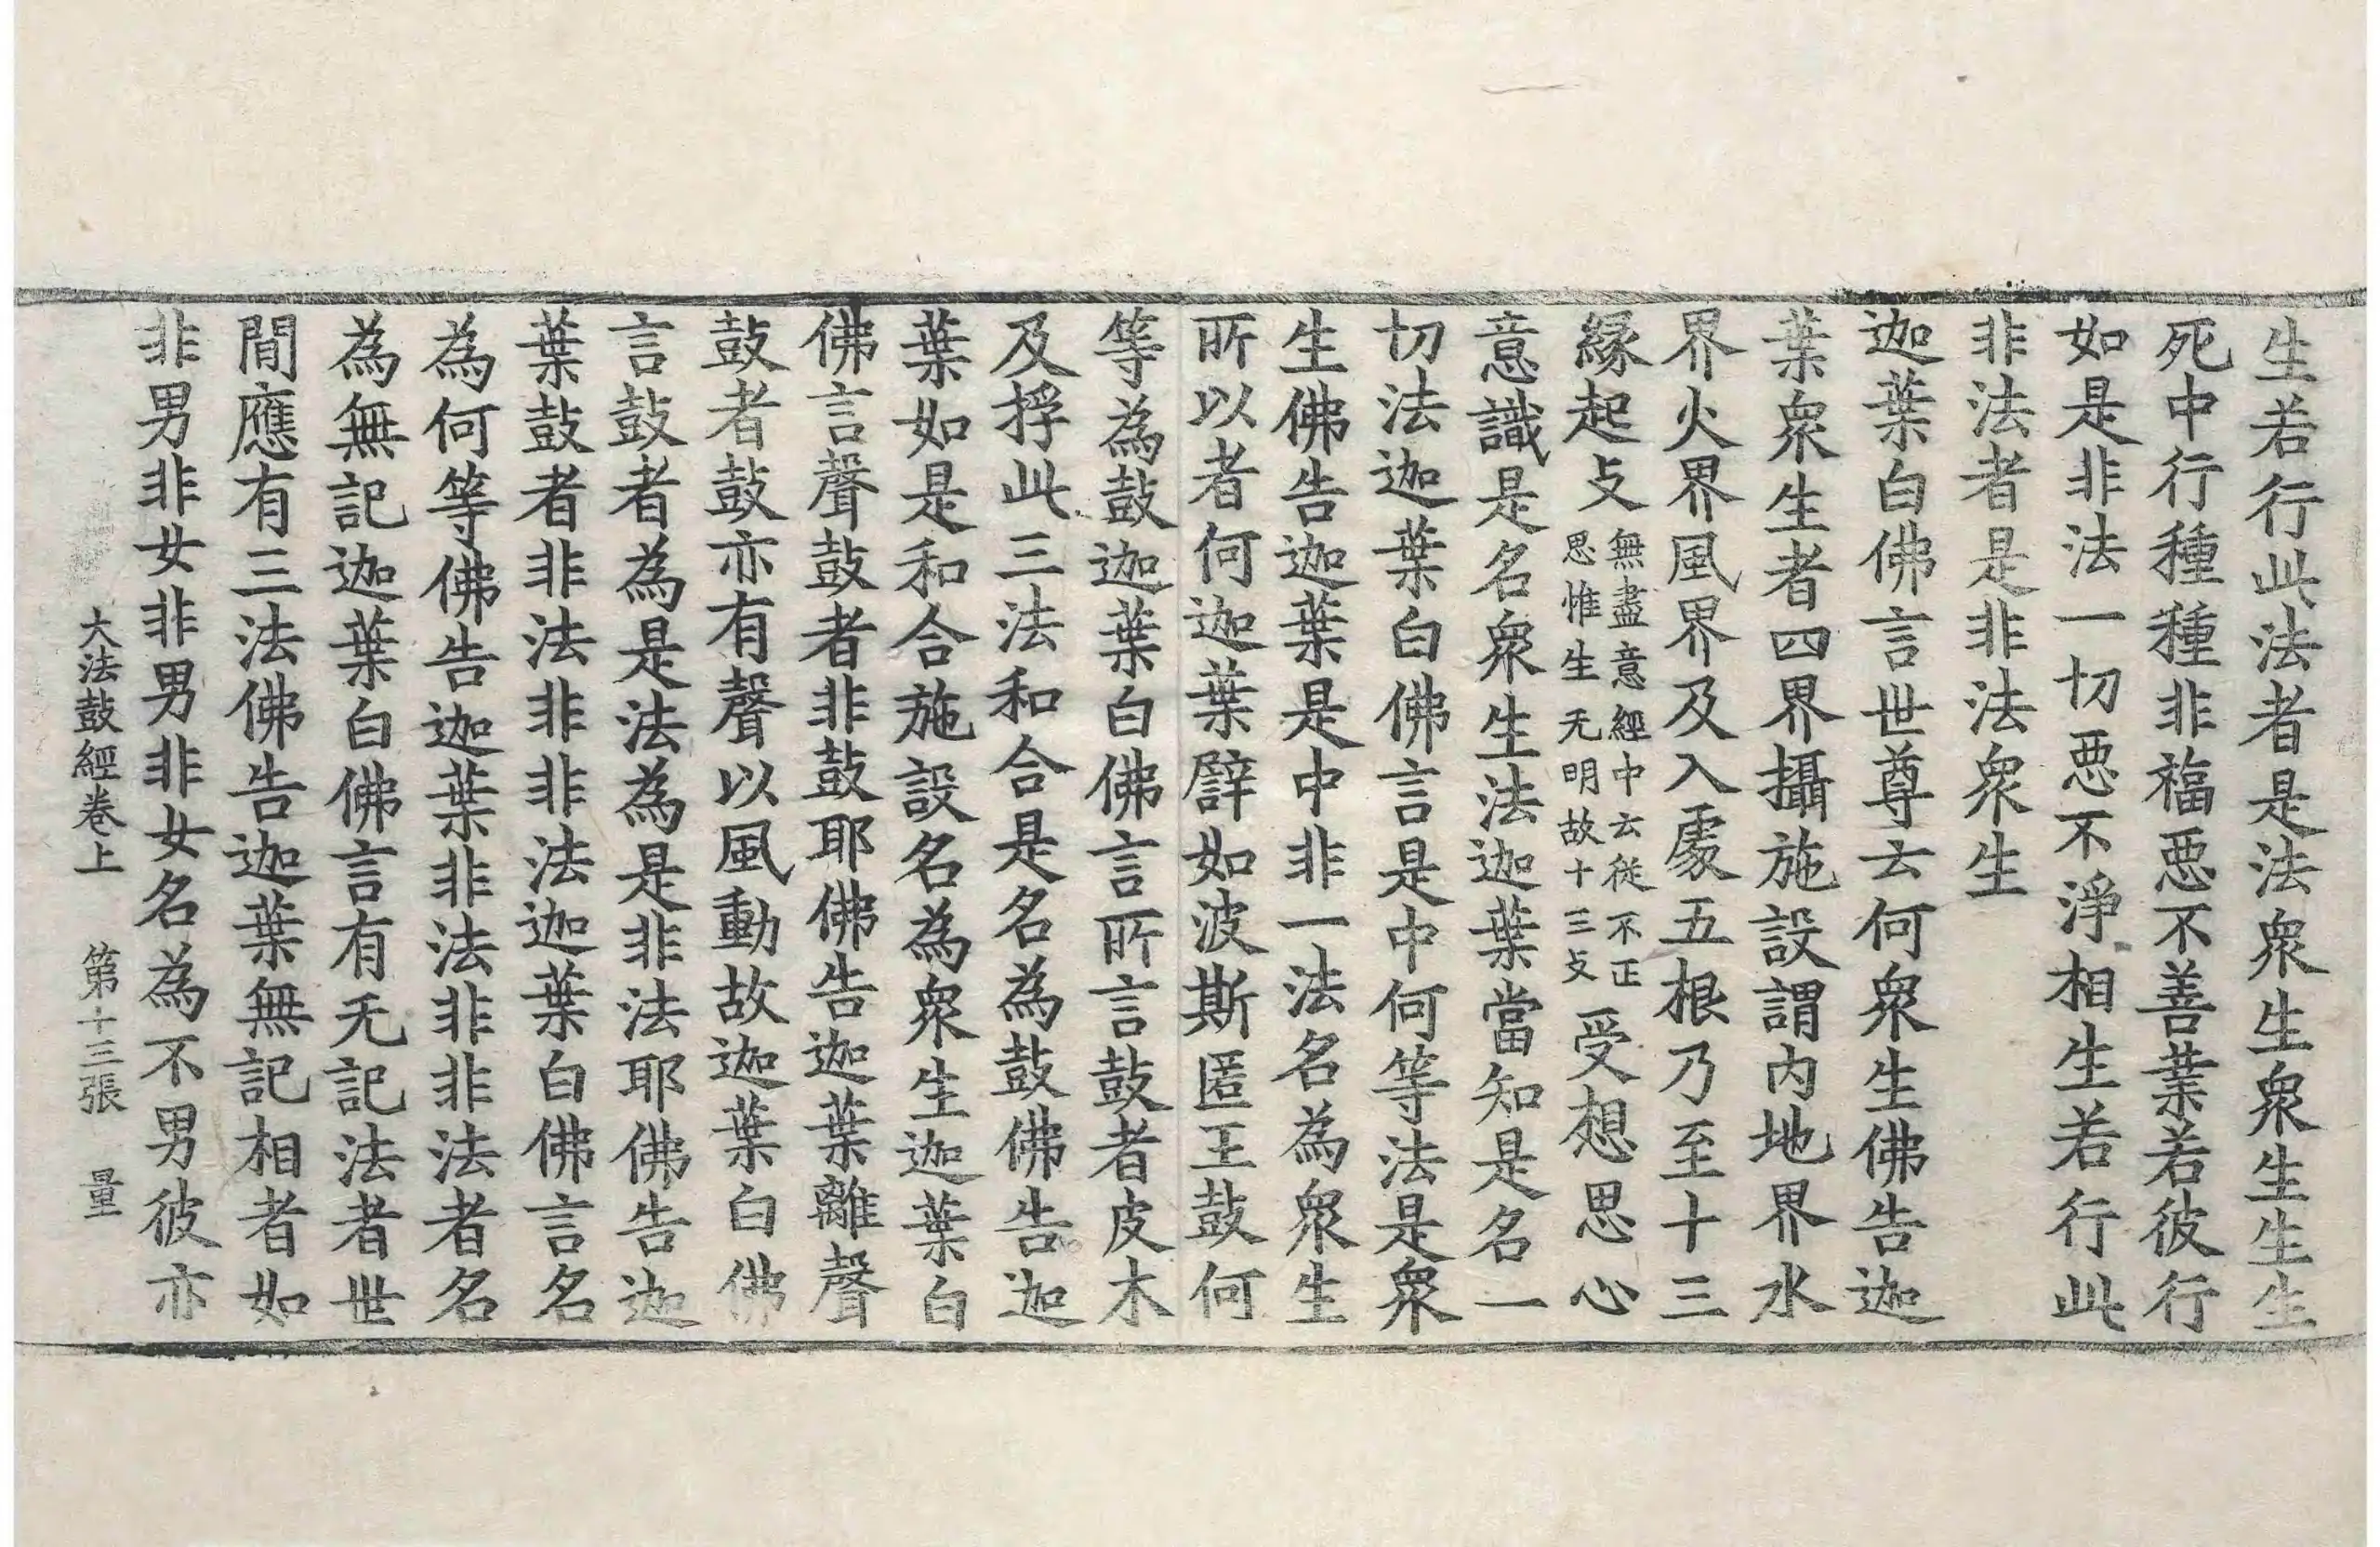 生若行此法者是法衆生衆生生生
死中行種種非福惡不善業若彼行
如是非法一切惡不淨相生若行此
非法者是非法衆生
迦葉白佛言世尊云何衆生佛告迦
葉衆生者四界攝施設謂內地界水
界火界風界及入處五根乃至十三
緣起攴無盡意經中云從不正思惟生无明故十三攴受想思心
意識是名衆生法迦葉當知是名一
切法迦葉白佛言是中何等法是衆
生佛告迦葉是中非一法名為衆生
所以者何迦葉譬如波斯匿王鼓何
等為鼓迦葉白佛言所言鼓者皮木
及捊此三法和合是名為鼓佛告迦
葉如是和合施設名為衆生迦葉白
佛言聲鼓者非鼓耶佛告迦葉離聲
鼓者鼓亦有聲以風動故迦葉白佛
言鼓者為是法為是非法耶佛告迦
葉鼓者非法非非法迦葉白佛言名
為何等佛告迦葉非法非非法者名
為無記迦葉白佛言有无記法者世
間應有三法佛告迦葉無記相者如
非男非女非男非女名為不男彼亦
大法鼓經卷上 第十三張 量